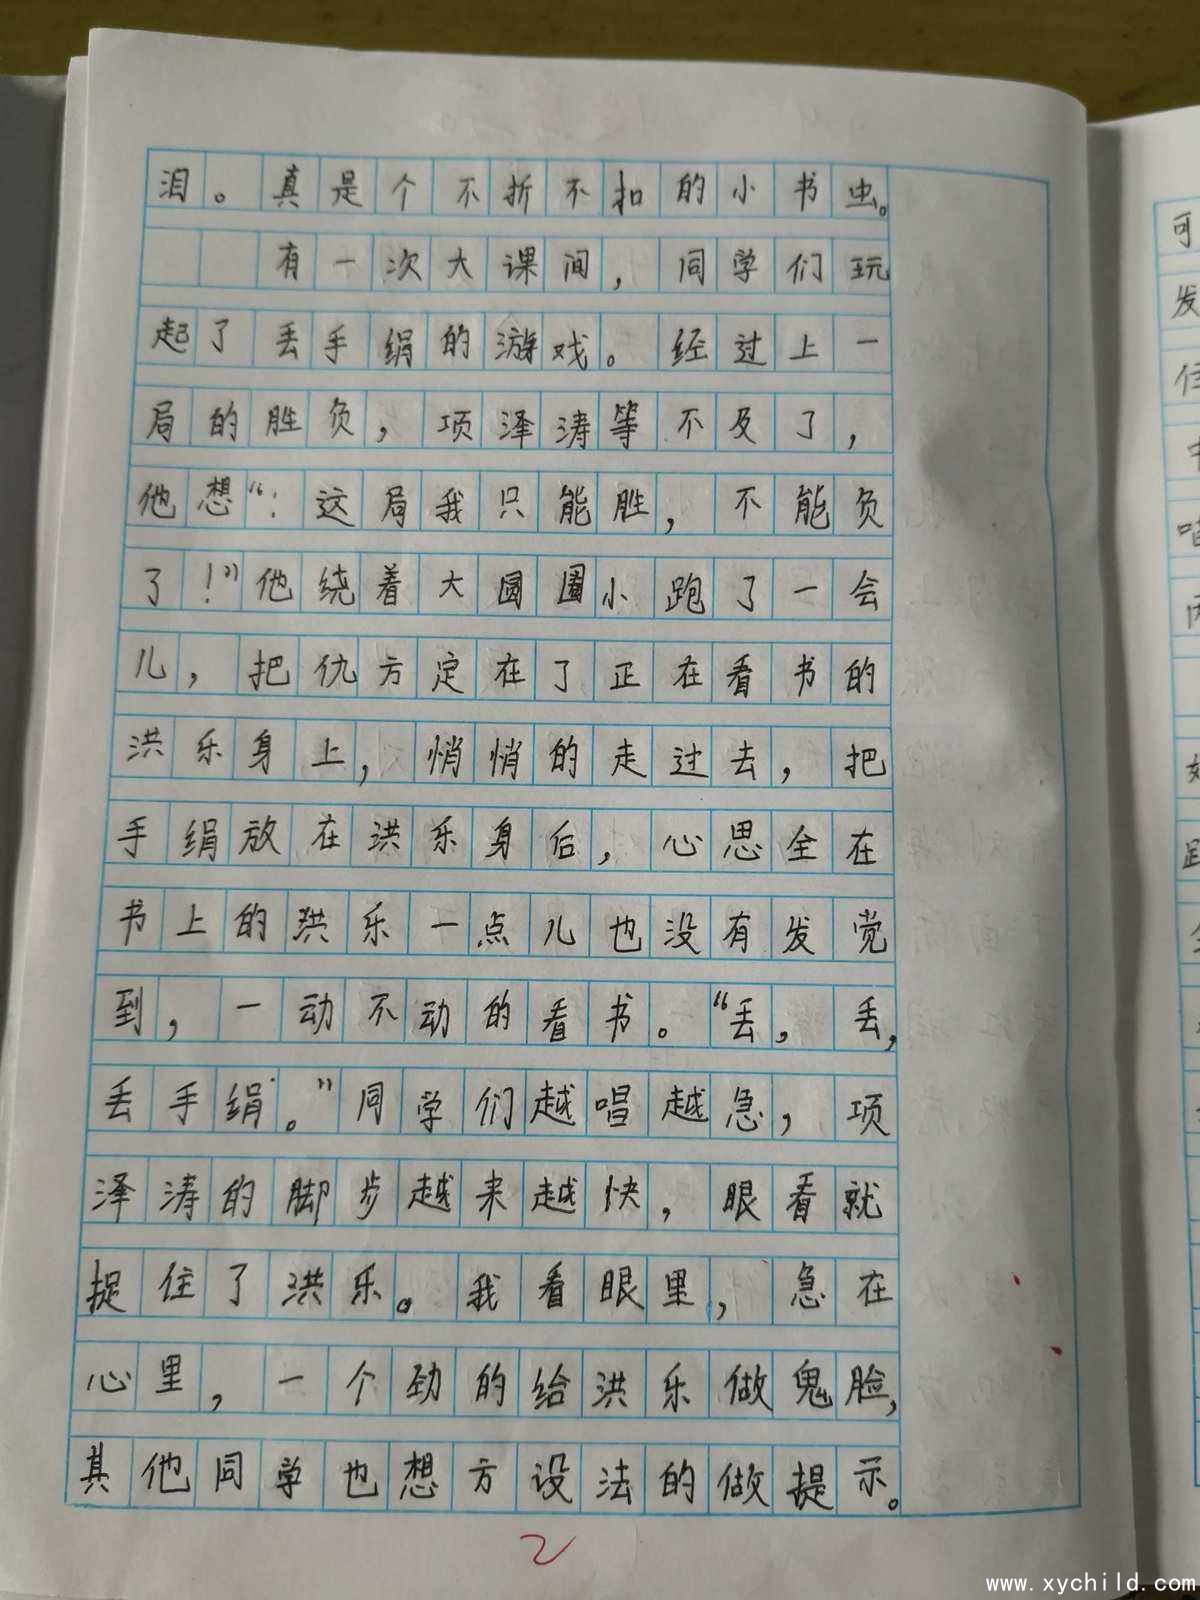 泪。真是个不折不扣的小书虫。
有一次大课间，同学们玩
起了丢手绢的游戏。经过上一
局的胜负，项泽涛等不及了，
他想“：这局我只能胜，不能负
了！”他绕着大圆圈小跑了一会
儿，把仇方定在了正在看书的
洪乐身上，悄悄的走过去，把
手绢放在洪乐身后，心思全在
书上的洪乐一点儿也没有发觉
到，一动不动的看书。“丢，丢，
丢手绢。”同学们越唱越急，项
泽涛的脚步越来越快，眼看就
捉住了洪乐。我看眼里，急在
心里，一个劲的给洪乐做鬼脸，
其他同学也想方设法的做提示。
2
可
发
www.xychild.com